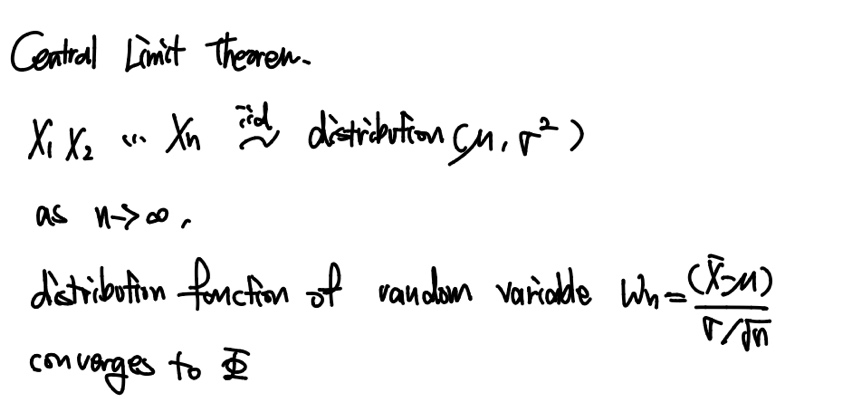 Central Limit Theorem.
X₁ X₂ ... Xn iid ~ distribution (μ, σ²)
as n→∞,
distribution function of random variable Wn = (X̄-μ) / σ/√n
converges to Φ